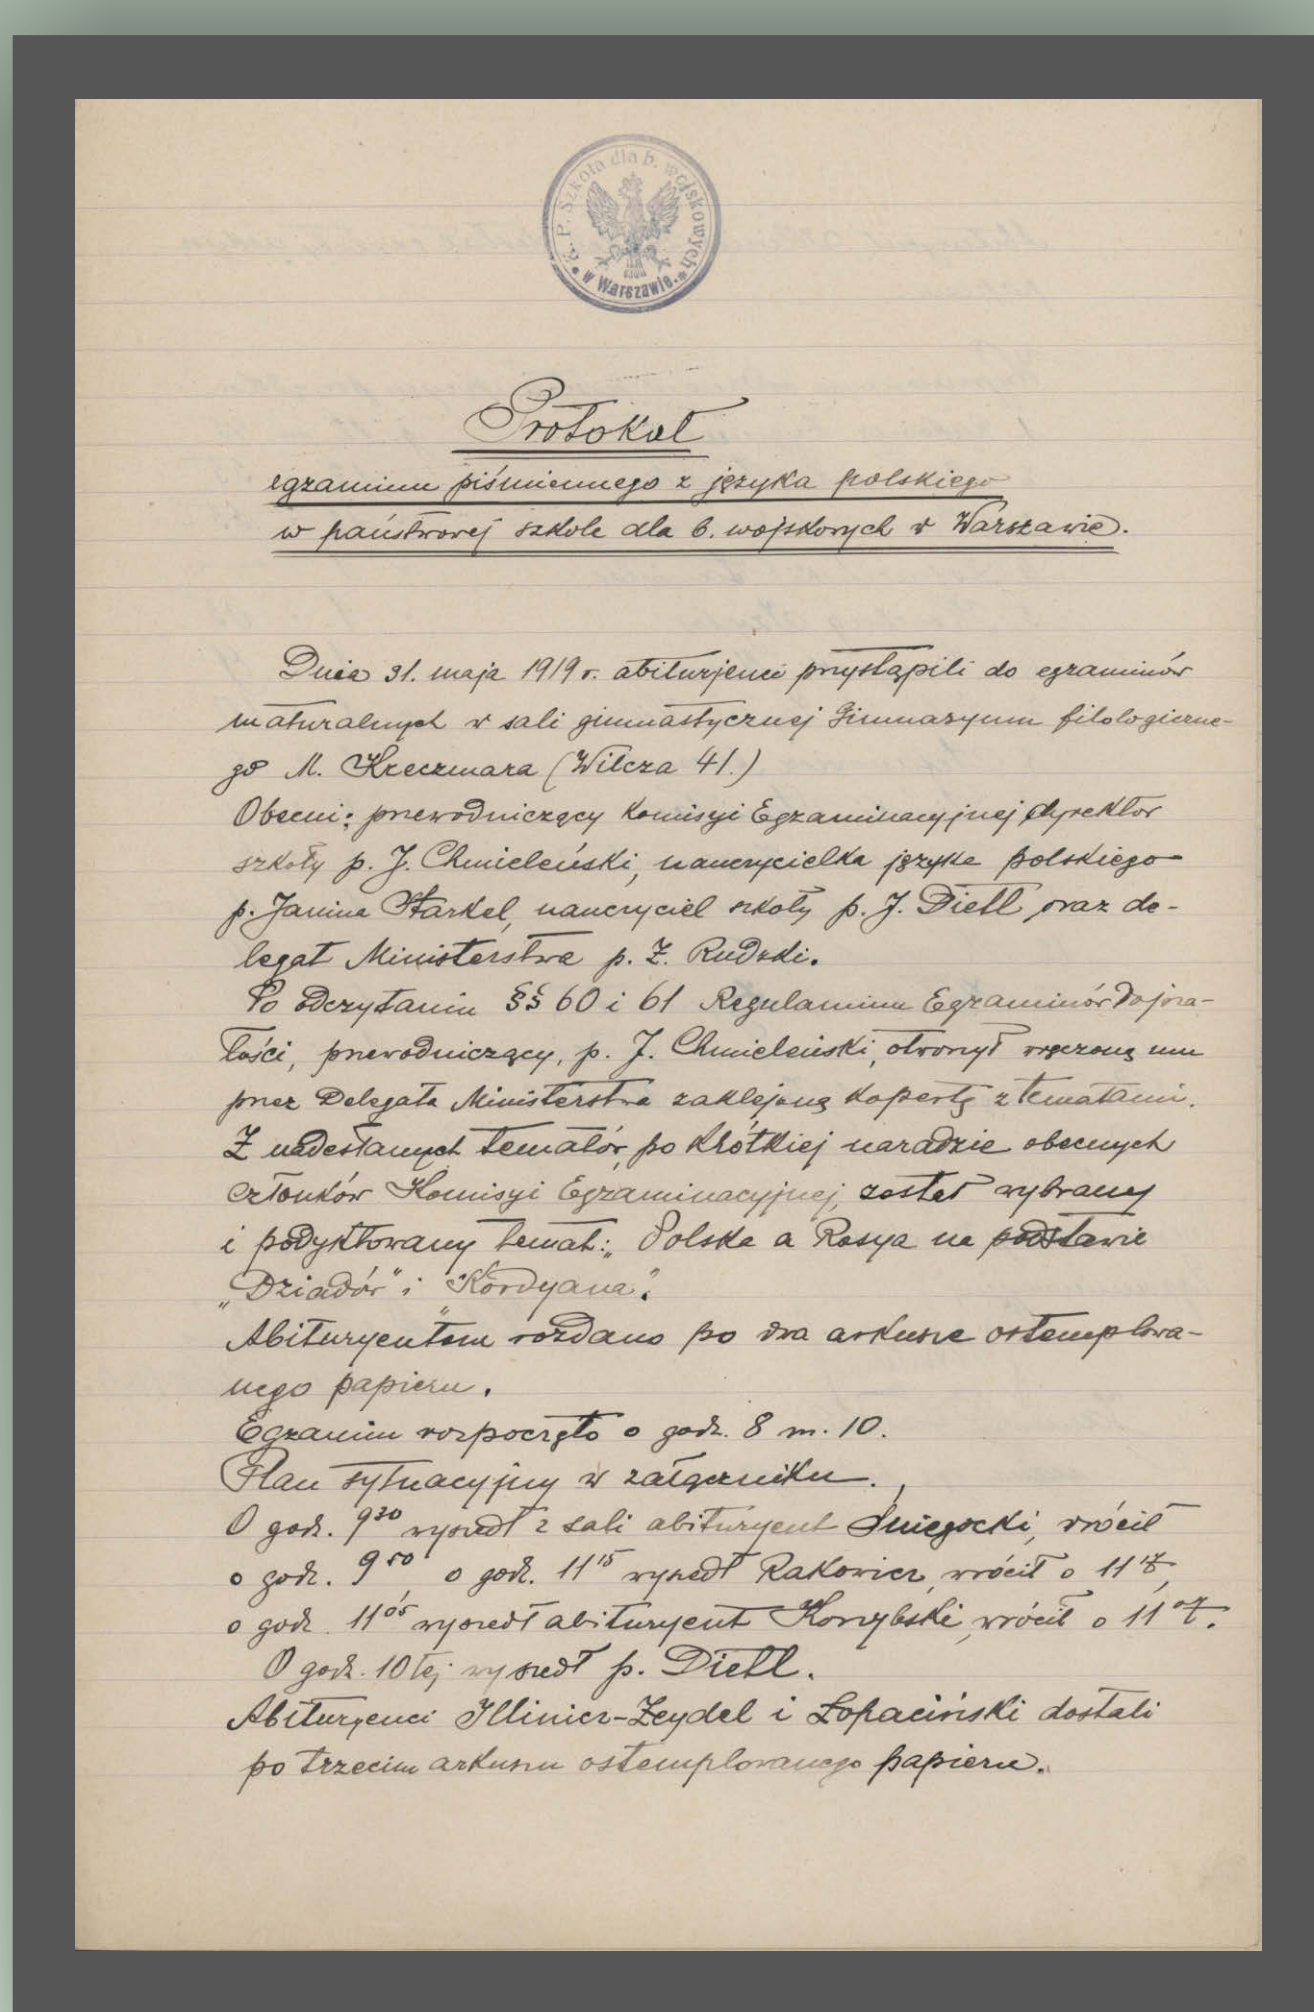 P. Szkoła dla b. wojskowych
w Warszawie.
Protokół
egzaminu piśmiennego z języka polskiego
w państwowej szkole dla b. wojskowych w Warszawie.
Dnia 31. maja 1919 r. abiturjenci przystąpili do egzaminów
maturalnych w sali gimnastycznej Gimnazyum filologiczne-
go M. Kreczmara (Wilcza 41.)
Obecni: przewodniczący Komisyi Egzaminacyjnej dyrektor
szkoły p. J. Chmieleński, nauczycielka języka polskiego
p. Janina Starkel, nauczyciel szkoły p. J. Dietl oraz de-
legat Ministerstwa p. Z. Rudzki.
Po odczytaniu §§ 60 i 61 Regulaminu Egzaminów Dojrza-
łości, przewodniczący, p. J. Chmieleński, otworzył wręczoną mu
przez Delegata Ministerstwa zaklejoną kopertę z tematami.
Z nadesłanych tematów, po krótkiej naradzie obecnych
członków Komisyi Egzaminacyjnej, został wybrany
i podyktowany temat: „Polska a Rosya na podstawie
„Dziadów" i „Kordyana".
Abituryentom rozdano po dwa arkusze ostemplowa-
nego papieru.
Egzamin rozpoczęto o godz. 8 m. 10.
Plan sytuacyjny w załączniku.
O godz. 9³⁰ wyszedł z sali abituryent Śniegocki, wrócił
o godz. 9⁵⁰, o godz. 11¹⁵ wyszedł Rakowicz, wrócił o 11¹⁷,
o godz. 11⁰⁵ wyszedł abituryent Korzybski, wrócił o 11⁰⁷.
O godz. 10tej wyszedł p. Dietl.
Abituryenci Illinicz-Zeydel i Łopaciński dostali
po trzecim arkuszu ostemplowanego papieru.